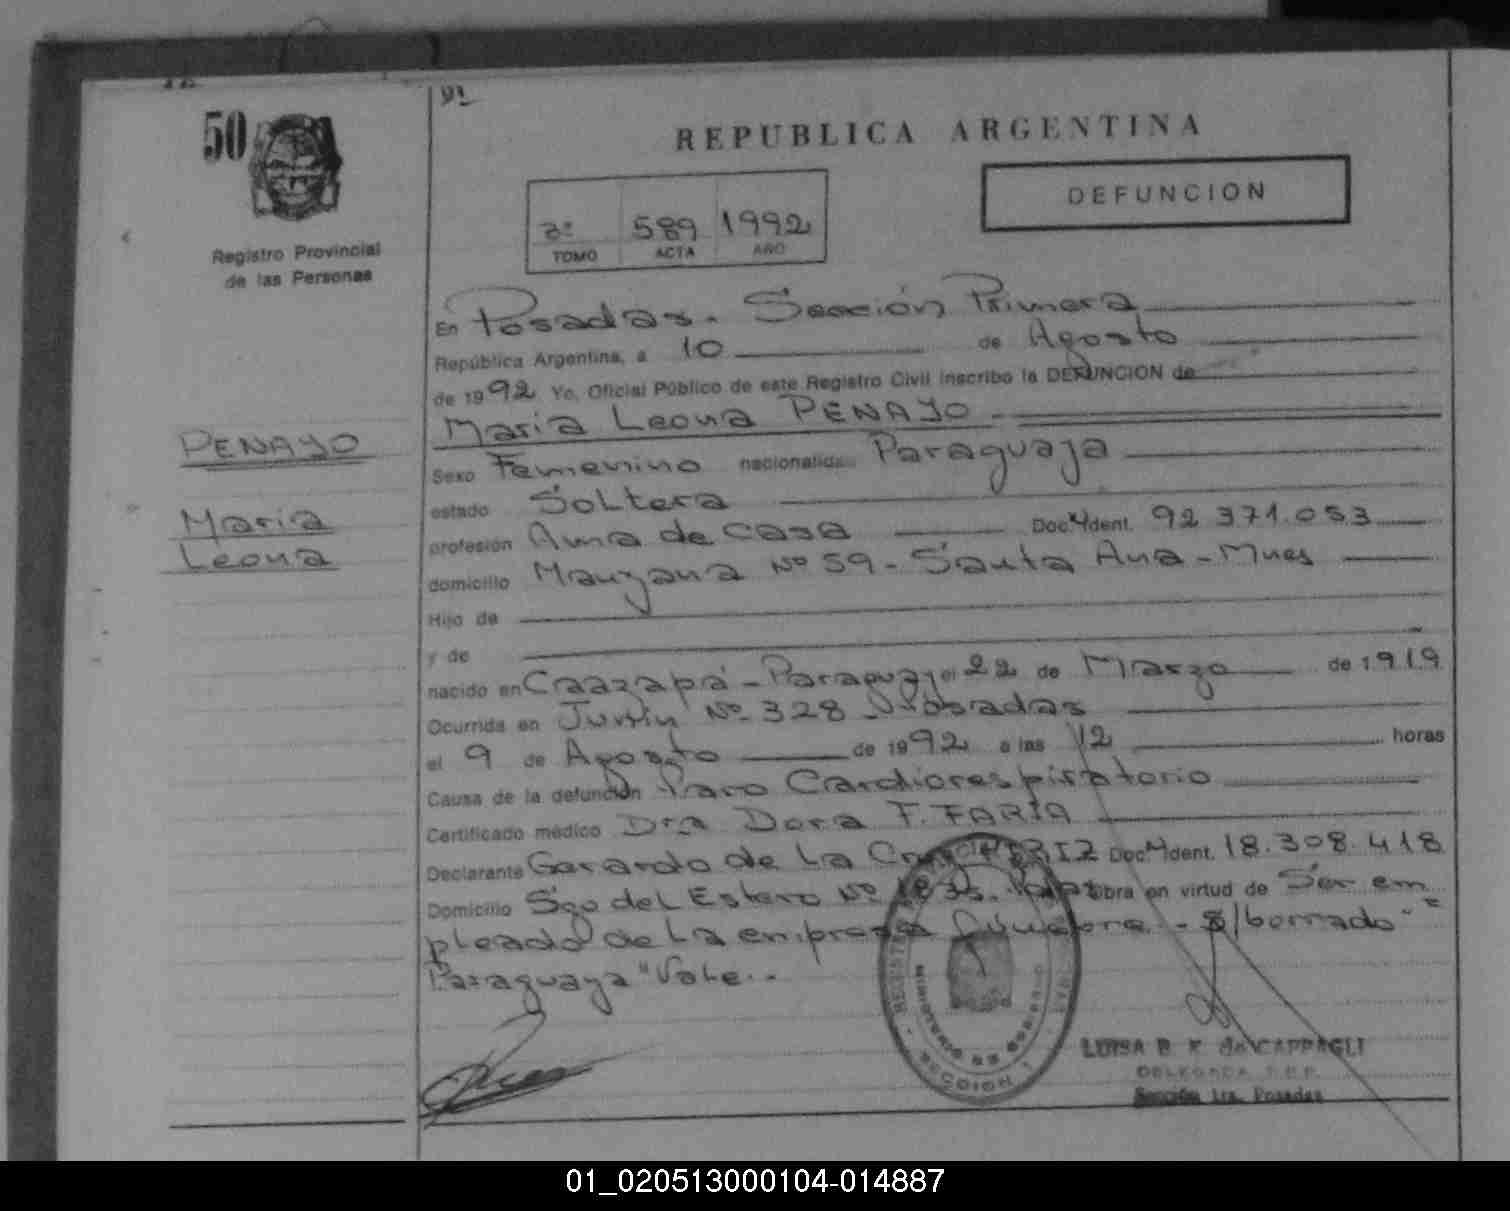 50
91
REPUBLICA ARGENTINA
DEFUNCION
Registro Provincial
de las Personas
3º 589 1992
TOMO ACTA AÑO
En Posadas. Sección Primera
República Argentina, a 10 de Agosto
de 1992 Yo, Oficial Público de este Registro Civil inscribo la DEFUNCION de
Maria Leona PENAYO
PENAYO
Maria
Leona
Sexo Femenino nacionalidad Paraguaya
estado Soltera
profesión Ama de casa Doc. Ident. 92.371.053
domicilio Manzana Nº 59 - Santa Ana - Mnes
Hijo de
y de
nacido en Caazapá - Paraguay el 22 de Marzo de 1919
Ocurrida en Junín Nº 328 - Posadas
el 9 de Agosto de 1992 a las 12 horas
Causa de la defunción Paro Cardiorespiratorio
Certificado médico Dra Dora F. FARIA
Declarante Gerardo de La Cruz Doc. Ident. 18.308.418
Domicilio Sgo del Estero Nº 1835. obra en virtud de Ser em
pleado de La empresa - S/borrado "
Paraguaya" Vale.-
MINISTERIO DE GOBIERNO
SECCION 1
LUISA B. K. de CAPPAGLI
DELEGADA R.P.P.
Sección 1ra. Posadas
01_020513000104-014887